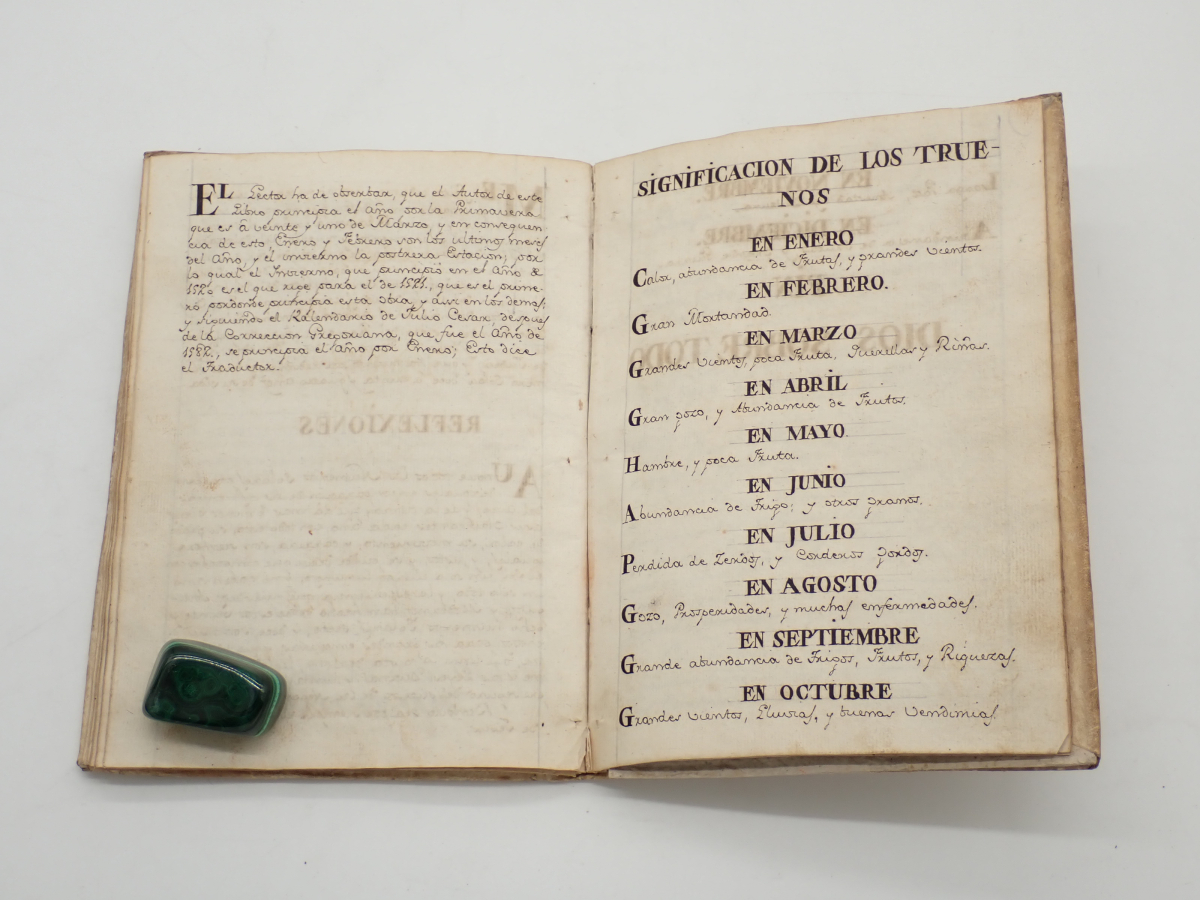 EL Lector ha de obserbar, que el Autor de este
Libro principia el Año por la Primavera
que es â veinte y uno de Marzo, y en consequen
cia de esto, Enero y Febrero son los ultimos meses
del Año, y el invierno la postrera Estacion; por
lo qual el Invierno, que principió en el Año de
1520 es el que rige para el de 1521., que es el prime-
ro por donde principia esta obra, y assi en los demas;
y siguiendo el Kalendario de Julio Cesar despues
de la Correccion Gregoriana, que fue el Año de
1582., se principia el Año por Enero; Esto dice
el Traductor.
REFLEXIONES
SIGNIFICACION DE LOS TRUE-
NOS
EN ENERO
Calor, abundancia de Frutas, y grandes vientos.
EN FEBRERO.
Gran Mortandad.
EN MARZO
Grandes vientos, poca Fruta, Querellas y Riñas.
EN ABRIL
Gran gozo, y Abundancia de Frutos.
EN MAYO.
Hambre, y poca Fruta.
EN JUNIO
Abundancia de Trigo; y otros granos.
EN JULIO
Perdida de Zerdos, y Corderos gordos.
EN AGOSTO
Gozo, Prosperidades, y muchas enfermedades.
EN SEPTIEMBRE
Grande abundancia de Trigos, Frutos, y Riquezas.
EN OCTUBRE
Grandes vientos, Lluvias, y buenas vendimias.